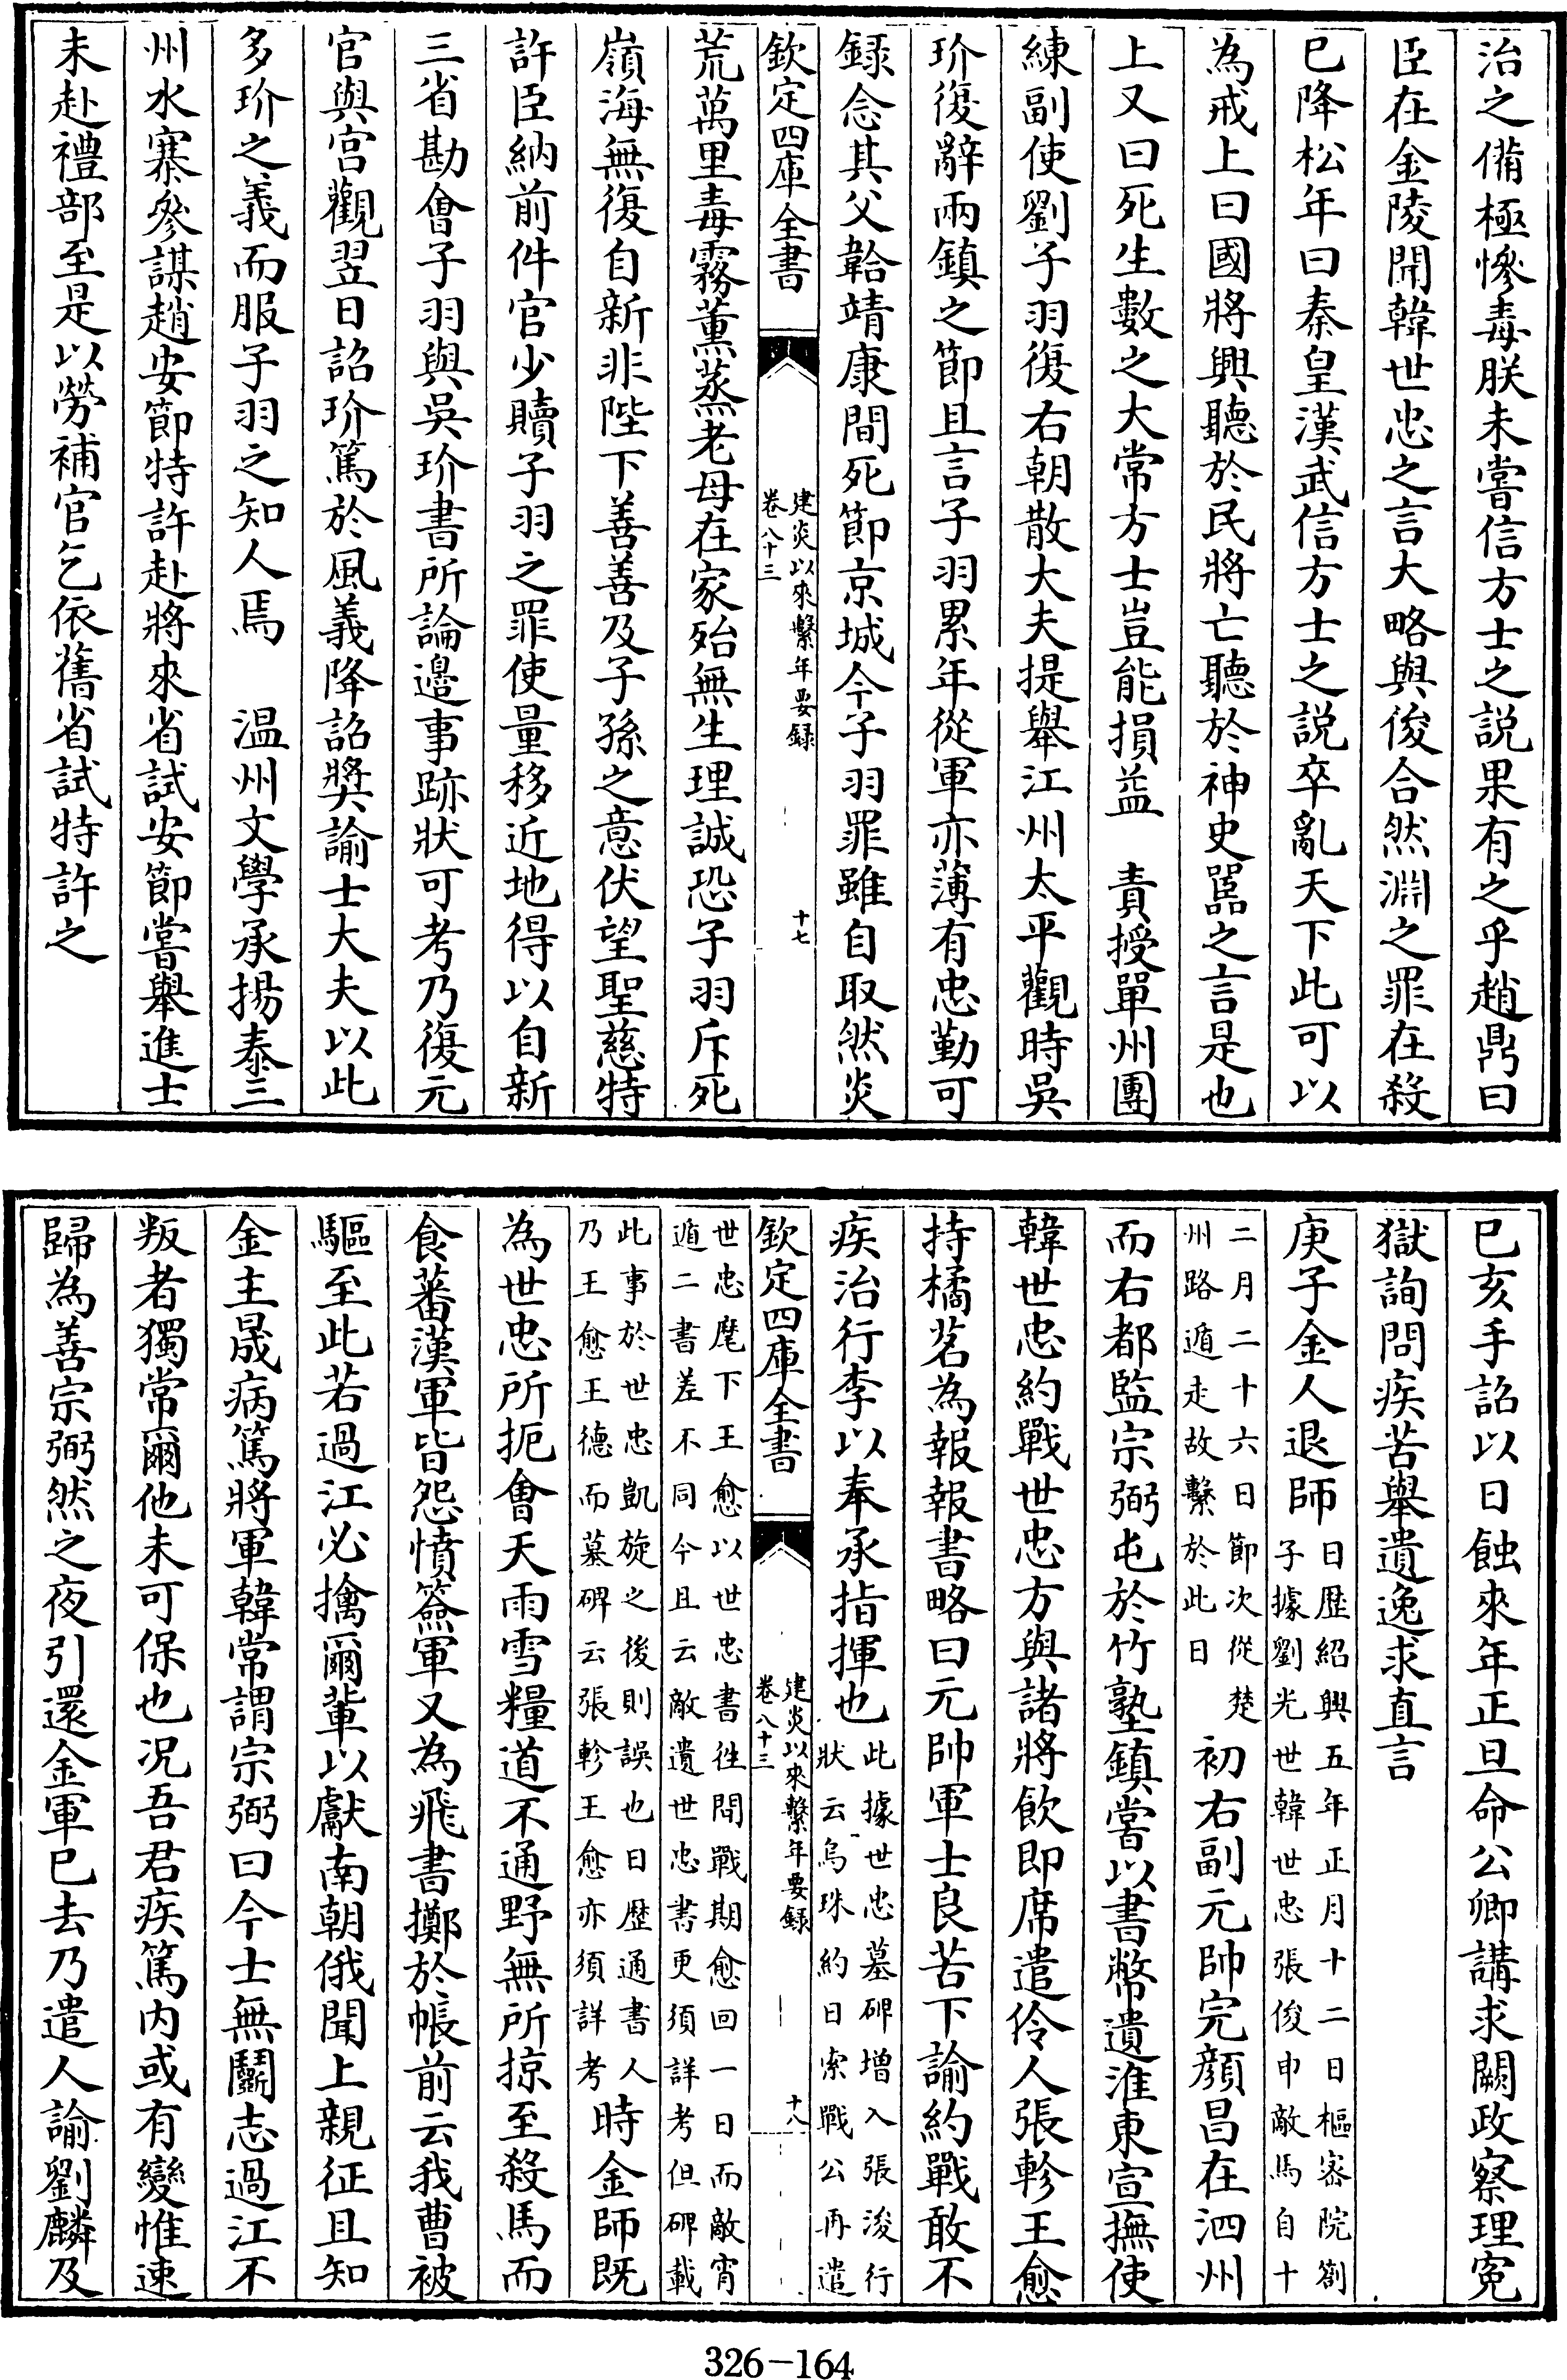 治之備極慘毒朕未嘗信方士之説果有之乎趙鼎曰
臣在金陵聞韓世忠之言大略與俊合然淵之罪在殺
已降松年曰秦皇漢武信方士之説卒亂天下此可以
為戒上曰國將興聽於民將亡聽於神史嚚之言是也
上又曰死生數之大常方士豈能損益　責授單州團
練副使劉子羽復右朝散大夫提舉江州太平觀時吳
玠復辭兩鎮之節且言子羽累年從軍亦薄有忠勤可
録念其父韐靖康間死節京城今子羽罪雖自取然炎
欽定四庫全書
建炎以來繫年要録
卷八十三
十七
荒萬里毒霧薰蒸老母在家殆無生理誠恐子羽斥死
嶺海無復自新非陛下善善及子孫之意伏望聖慈特
許臣納前件官少贖子羽之罪使量移近地得以自新
三省勘會子羽與吳玠書所論邉事跡狀可考乃復元
官與宫觀翌日詔玠篤於風義降詔奬諭士大夫以此
多玠之義而服子羽之知人焉　温州文學承揚泰三
州水寨參謀趙安節特許赴將來省試安節嘗舉進士
未赴禮部至是以勞補官乞依舊省試特許之
巳亥手詔以日蝕來年正旦命公卿講求闕政察理寃
獄詢問疾苦舉遺逸求直言
庚子金人退師
日歴紹興五年正月十二日樞宻院劄
子據劉光世韓世忠張俊申敵馬自十
二月二十六日節次從楚
州路遁走故繫於此日
初右副元帥完顔昌在泗州
而右都監宗弼屯於竹塾鎮嘗以書幣遺淮東宣撫使
韓世忠約戰世忠方與諸將飲即席遣伶人張軫王愈
持橘茗為報報書略曰元帥軍士良苦下諭約戰敢不
疾治行李以奉承指揮也
此據世忠墓碑増入張浚行
狀云烏珠約日索戰公再遣
欽定四庫全書
建炎以來繫年要録
卷八十三
十八
世忠麾下王愈以世忠書徃問戰期愈回一日而敵宵
遁二書差不同今且云敵遺世忠書更須詳考但碑載
此事於世忠凱旋之後則誤也日歴通書人
乃王愈王德而墓碑云張軫王愈亦須詳考
時金師既
為世忠所扼會天雨雪糧道不通野無所掠至殺馬而
食蕃漢軍皆怨憤簽軍又為飛書擲於帳前云我曹被
驅至此若過江必擒爾輩以獻南朝俄聞上親征且知
金主晟病篤將軍韓常謂宗弼曰今士無鬬志過江不
叛者獨常爾他未可保也况吾君疾篤内或有變惟速
歸為善宗弼然之夜引還金軍巳去乃遣人諭劉麟及
326-164